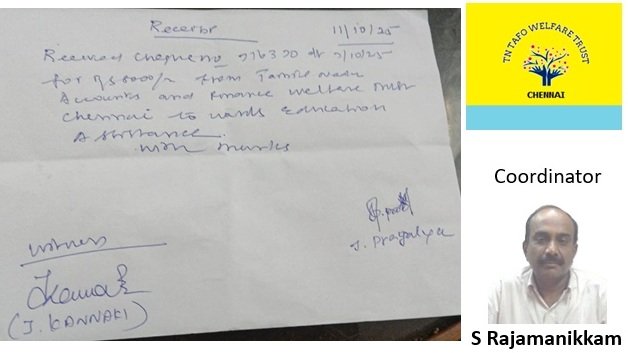 Receipt
11/10/25
Received Cheque no 776320 dt 7/10/25
for Rs 5000/- from Tamil Nadu
Accounts and Finance Welfare Trust
Chennai towards Education
Assistance.
with thanks
J. Pragalya
Witness
(J. KANNAKI)
TN TAFO WELFARE TRUST
CHENNAI
Coordinator
S Rajamanikkam